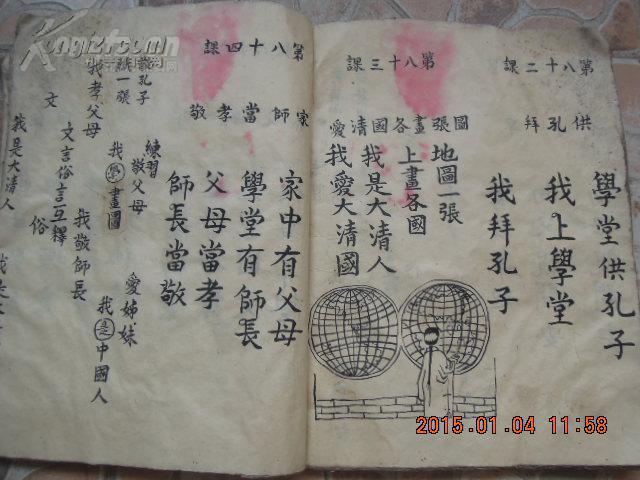 第八十二課
供孔拜
學堂供孔子
我上學堂
我拜孔子
第八十三課
圖張畫各國清愛
地圖一張
上畫各國
我是大清人
我愛大清國
第八十四課
家師當孝敬
家中有父母
學堂有師長
父母當孝
師長當敬
練習
敬父母
愛姊妹
我學畫圖
我是中國人
我敬師長
文言俗言互釋
俗
文
我孝父母
我是大清人
孔子
一張
2015.01.04 11:58